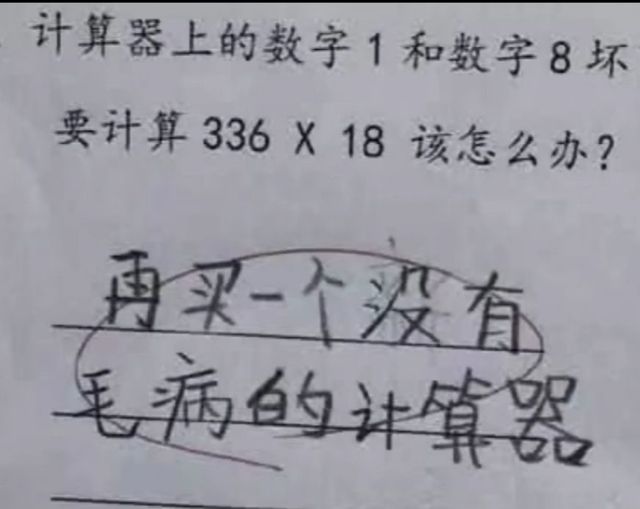 计算器上的数字1和数字8坏
要计算336 X 18 该怎么办?
再买一个没有
毛病的计算器